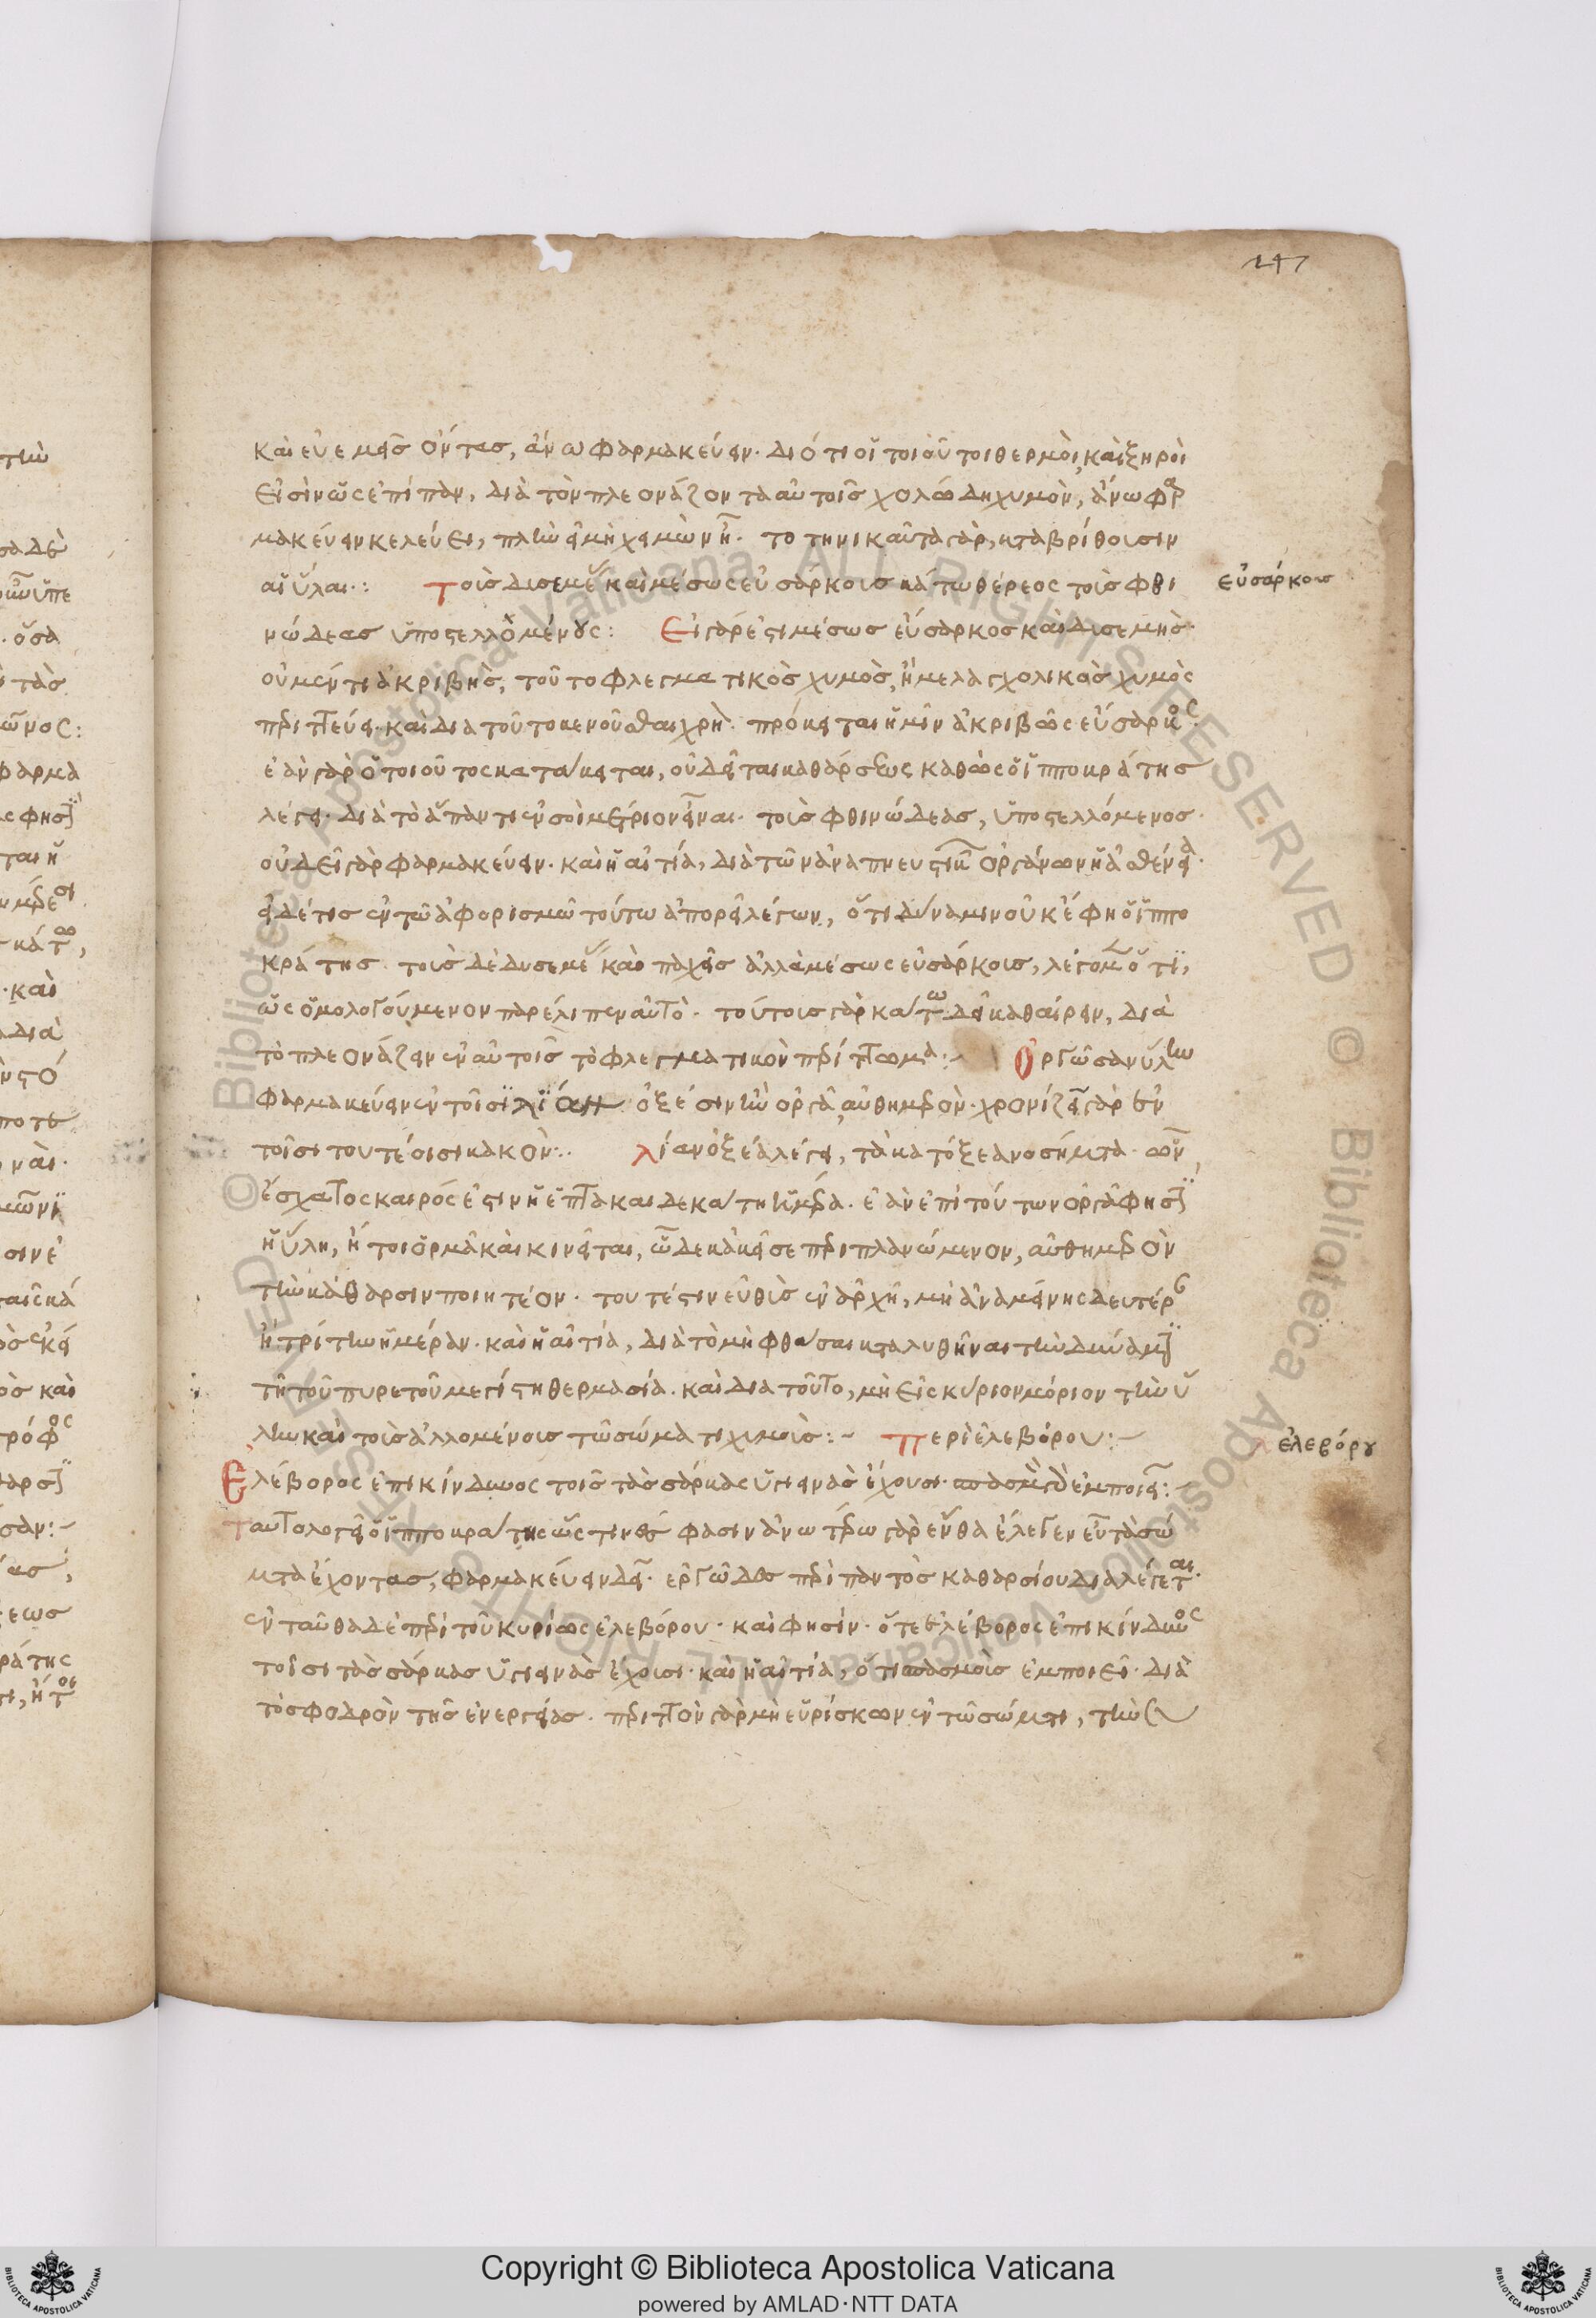 247
καὶ εὐεμεῖς ὄντας, ἄνω φαρμακεύειν. διότι οἱ τοιοῦτοι θερμοὶ καὶ ξηροὶ
εἰσὶν ὡς ἐπίπαν, διὰ τὸν πλεονάζοντα αὐτοῖς χολώδη χυμὸν, ἄνω φαρ
μακεύειν κελεύει, πλὴν εἰ μὴ χειμὼν ἦ. το τηνικαῦτα γὰρ, καταβρίθουσιν
αἱ ὕλαι.: τοὺς δυσεμεῖς καὶ μέσως εὐσάρκους κάτω θέρεος τοὺς φθι
εὐσάρκους
νώδεας ὑποστελλομένους: Εἰ γὰρ ἐστι μέσως εὔσαρκος καὶ δυσεμὴς.
οὐ μέντι ἀκριβὴς, τούτο φλεγματικὸς χυμὸς, ἢ μελαγχολικὸς χυμὸς
περιττεύει. καὶ δια τοῦτο κενοῦσθαι χρή. πρόκειται ἡμῖν ἀκριβῶς εὔσαρκος.
ἐὰν γὰρ ὁ τοιοῦτος κατάκειται, οὐ δεῖται καθάρσεως καθὼς ὁ ἱπποκράτης
λέγει. διὰ τὸ ἅπαντι ἐν σοὶ μέτριον εἶναι. τοὺς φθινώδεας, ὑποστελλόμενος.
οὐ δεῖ γὰρ φαρμακεύειν. καὶ ἡ αἰτία, διὰ τῶν ἀναπνευστικῶν ὀργάνων ἡ ἀσθένεια.
εἰ δέ τις ἐν τῶ ἀφορισμῶ τούτω ἀπορεῖ λέγων, ὅτι δύναμιν οὐκ ἔφη ὁ ἱππο
κράτης. τους δὲ δυσεμεῖς καὶ παχεῖς ἀλλὰ μέσως εὐσάρκους, λέγομεν ὅτι,
ὡς ὁμολογούμενον παρέλιπεν αὐτὸ. τούτοις γὰρ κάτω δεῖ καθαίρειν, διὰ
τὸ πλεονάζειν ἐν αὐτοῖς τὸ φλεγματικὸν περίττωμα:~ Ὀργῶσαν ὕλην
φαρμακεύειν ἐν τοῖσι λίαν ὀξέσιν ἢν ὀργᾶ, αὐθημερὸν. χρονίζειν γὰρ ἐν
τοῖσι τουτέοισι κακὸν:. λίαν ὀξέα λέγει, τὰ κατόξεα νοσήματα. ὧν,
ἔσχατος καιρός ἐστιν ἡ ἑπτακαιδεκάτη ἡμέρα. ἐὰν ἐπὶ τούτων ὀργᾶ φησὶν
ἡ ὕλη, ἤτοι ὁρμᾶ καὶ κινεῖται, ὧδε κἀκεῖσε περιπλανώμενον, αὐθημερὸν
τὴν κάθαρσιν ποιητέον. τουτέστιν εὐθὺς ἐν ἀρχῆ, μὴ ἀναμείνης δευτέραν
ἢ τρίτην ἡμέραν. καὶ ἡ αἰτία, διὰ τὸ μὴ φθάσαι καταλυθῆναι τὴν δύναμιν
τῆ τοῦ πυρετοῦ μεγίστη θερμασία. καὶ δια τοῦτο, μὴ εἰς κύριον μόριον τὴν ὕ
λην καὶ τοὺς ἀλλομένους τῶ σώματι χυμοὺς:~ περὶ ἐλεβόρου:~
ἐλεβόρου
Ἐλέβορος ἐπικίνδυνος τοῖς τὰς σάρκας ὑγιεινὰς ἔχουσι. σπασμὸν γὰρ ἐμποιεῖ:~
ταυτολογεῖ ὁ ἱπποκράτης ὥς τινές φασιν ἀνωτέρω γὰρ ἔνθα ἔλεγεν εὖ τὰ σώ
ματα ἔχοντας, φαρμακεύειν δεῖ. ἐργῶδες περὶ παντὸς καθαρσίου διαλέγεται.
ἐνταῦθα δὲ περὶ τοῦ κυρίως ἐλεβόρου. καὶ φησίν. ὅτε ἐλέβορος ἐπικίνδυνος
τοῖσι τὰς σάρκας ὑγιεινὰς ἔχουσι. καὶ ἡ αἰτία, ὅτι σπασμοὺς ἐμποιεῖ. διὰ
τὸ σφοδρὸν τῆς ἐνεργείας. περιττὸν γὰρ μὴ εὑρίσκων ἐν τῶ σώματι, τὴν
Copyright © Biblioteca Apostolica Vaticana
powered by AMLAD·NTT DATA